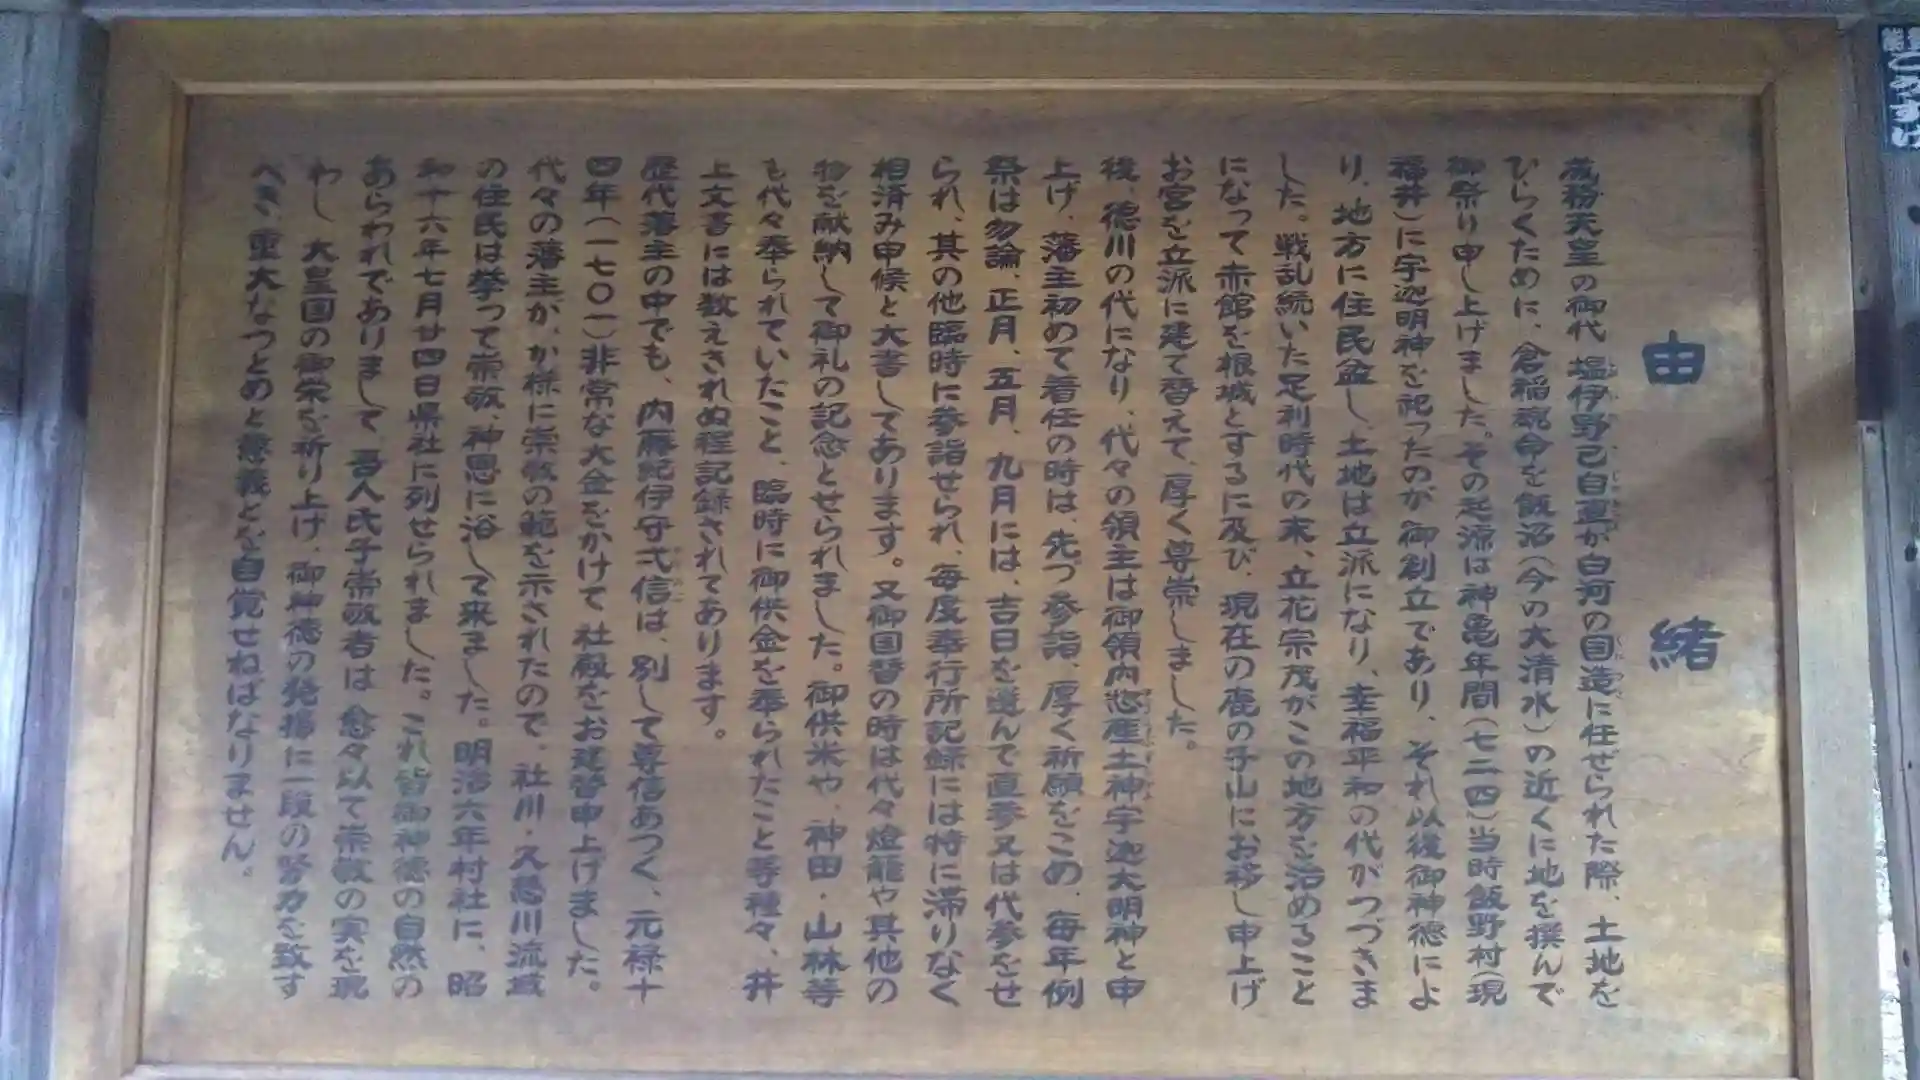 由緒
成務天皇の御代 塩伊野己自直が白河の国造に任せられた際、土地を
ひらくために、倉稲魂命を飯沼(今の大清水)の近くに地を撰んで
御祭り申し上げました。その起源は神亀年間(七二四)当時飯野村(現
福井)に宇迦明神を祀ったのが御創立であり、それ以後御神徳によ
り、地方に住民益し、土地は立派になり、幸福平和の代がつづきま
した。戦乱続いた足利時代の末、立花宗茂がこの地方を治めること
になって赤館を根城とするに及び、現在の鹿の子山にお移し申上げ
お宮を立派に建て替えて、厚く尊崇しました。
後、徳川の代になり、代々の領主は御領内惣産土神宇迦大明神と申
上げ、藩主初めて着任の時は、先づ参詣、厚く祈願をこめ、毎年例
祭は勿論、正月、五月、九月には、吉日を選んで直参又は代参をせ
られ、其の他臨時に参詣せられ、毎度奉行所記録には特に滞りなく
相済み申候と大書してあります。又御国替の時は代々燈籠や其他の
物を献納して御礼の記念とせられました。御供米や、神田・山林等
も代々奉られていたこと、臨時に御供金を奉られたこと等種々、井
上文書には数えきれぬ程記録されてあります。
歴代藩主の中でも、内藤紀伊守弌信は、別して尊信あつく、元禄十
四年(一七〇一)非常な大金をかけて社殿をお建替申上げました。
代々の藩主が、か様に崇敬の範を示されたので、社川・久慈川流域
の住民は挙って崇敬、神恩に浴して来ました。明治六年村社に、昭
和十六年七月廿四日県社に列せられました。これ皆御神徳の自然の
あらわれでありまして、吾人氏子崇敬者は 愈々以て崇敬の実を現
わし 大皇国の御栄を祈り上げ、御神徳の発揚に一段の努力を致す
べき、重大なつとめと意義とを自覚せねばなりません。